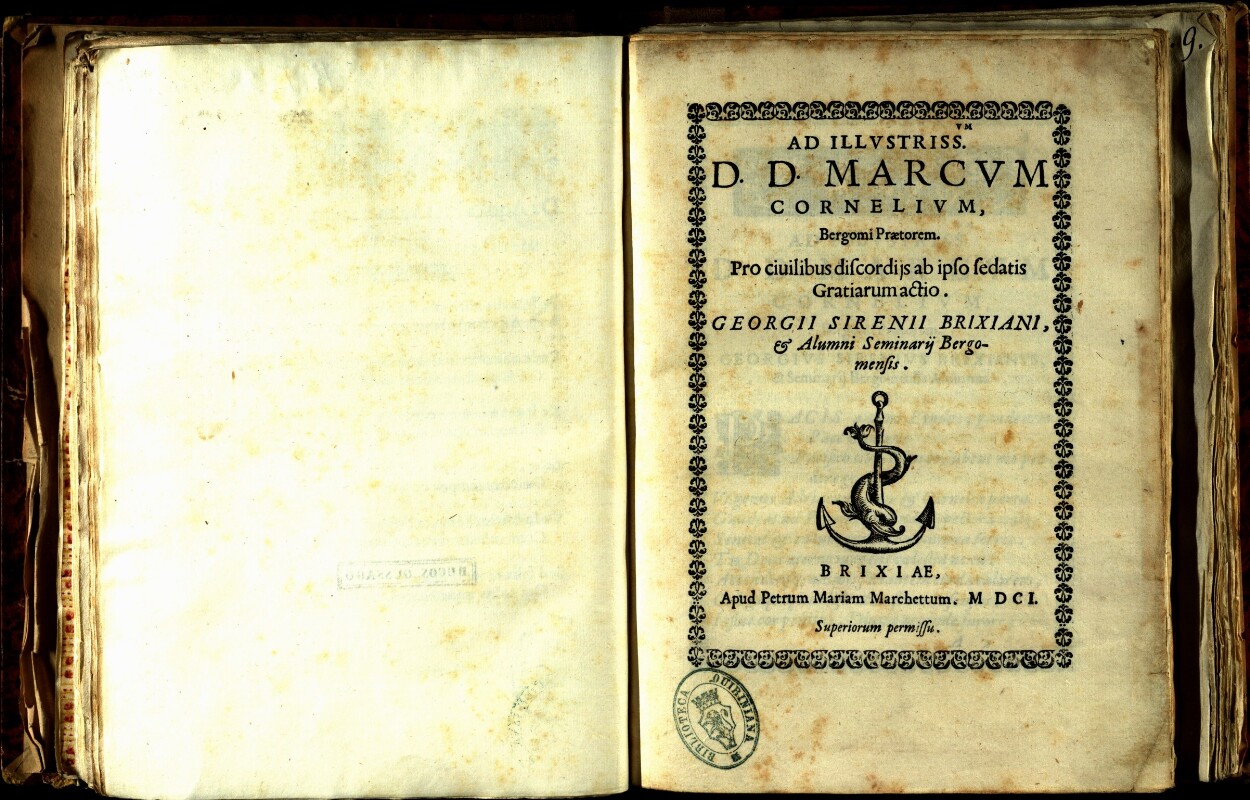 9.
AD ILLVSTRISS.VM
D. D. MARCVM
CORNELIVM,
Bergomi Prætorem.
Pro ciuilibus diſcordijs ab ipſo ſedatis
Gratiarum actio.
GEORGII SIRENII BRIXIANI,
& Alumni Seminarij Bergo-
menſis.
BRIXIAE,
Apud Petrum Mariam Marchettum. M DCI.
Superiorum permiſſu.
BIBLIOTECA QUIRINIANA